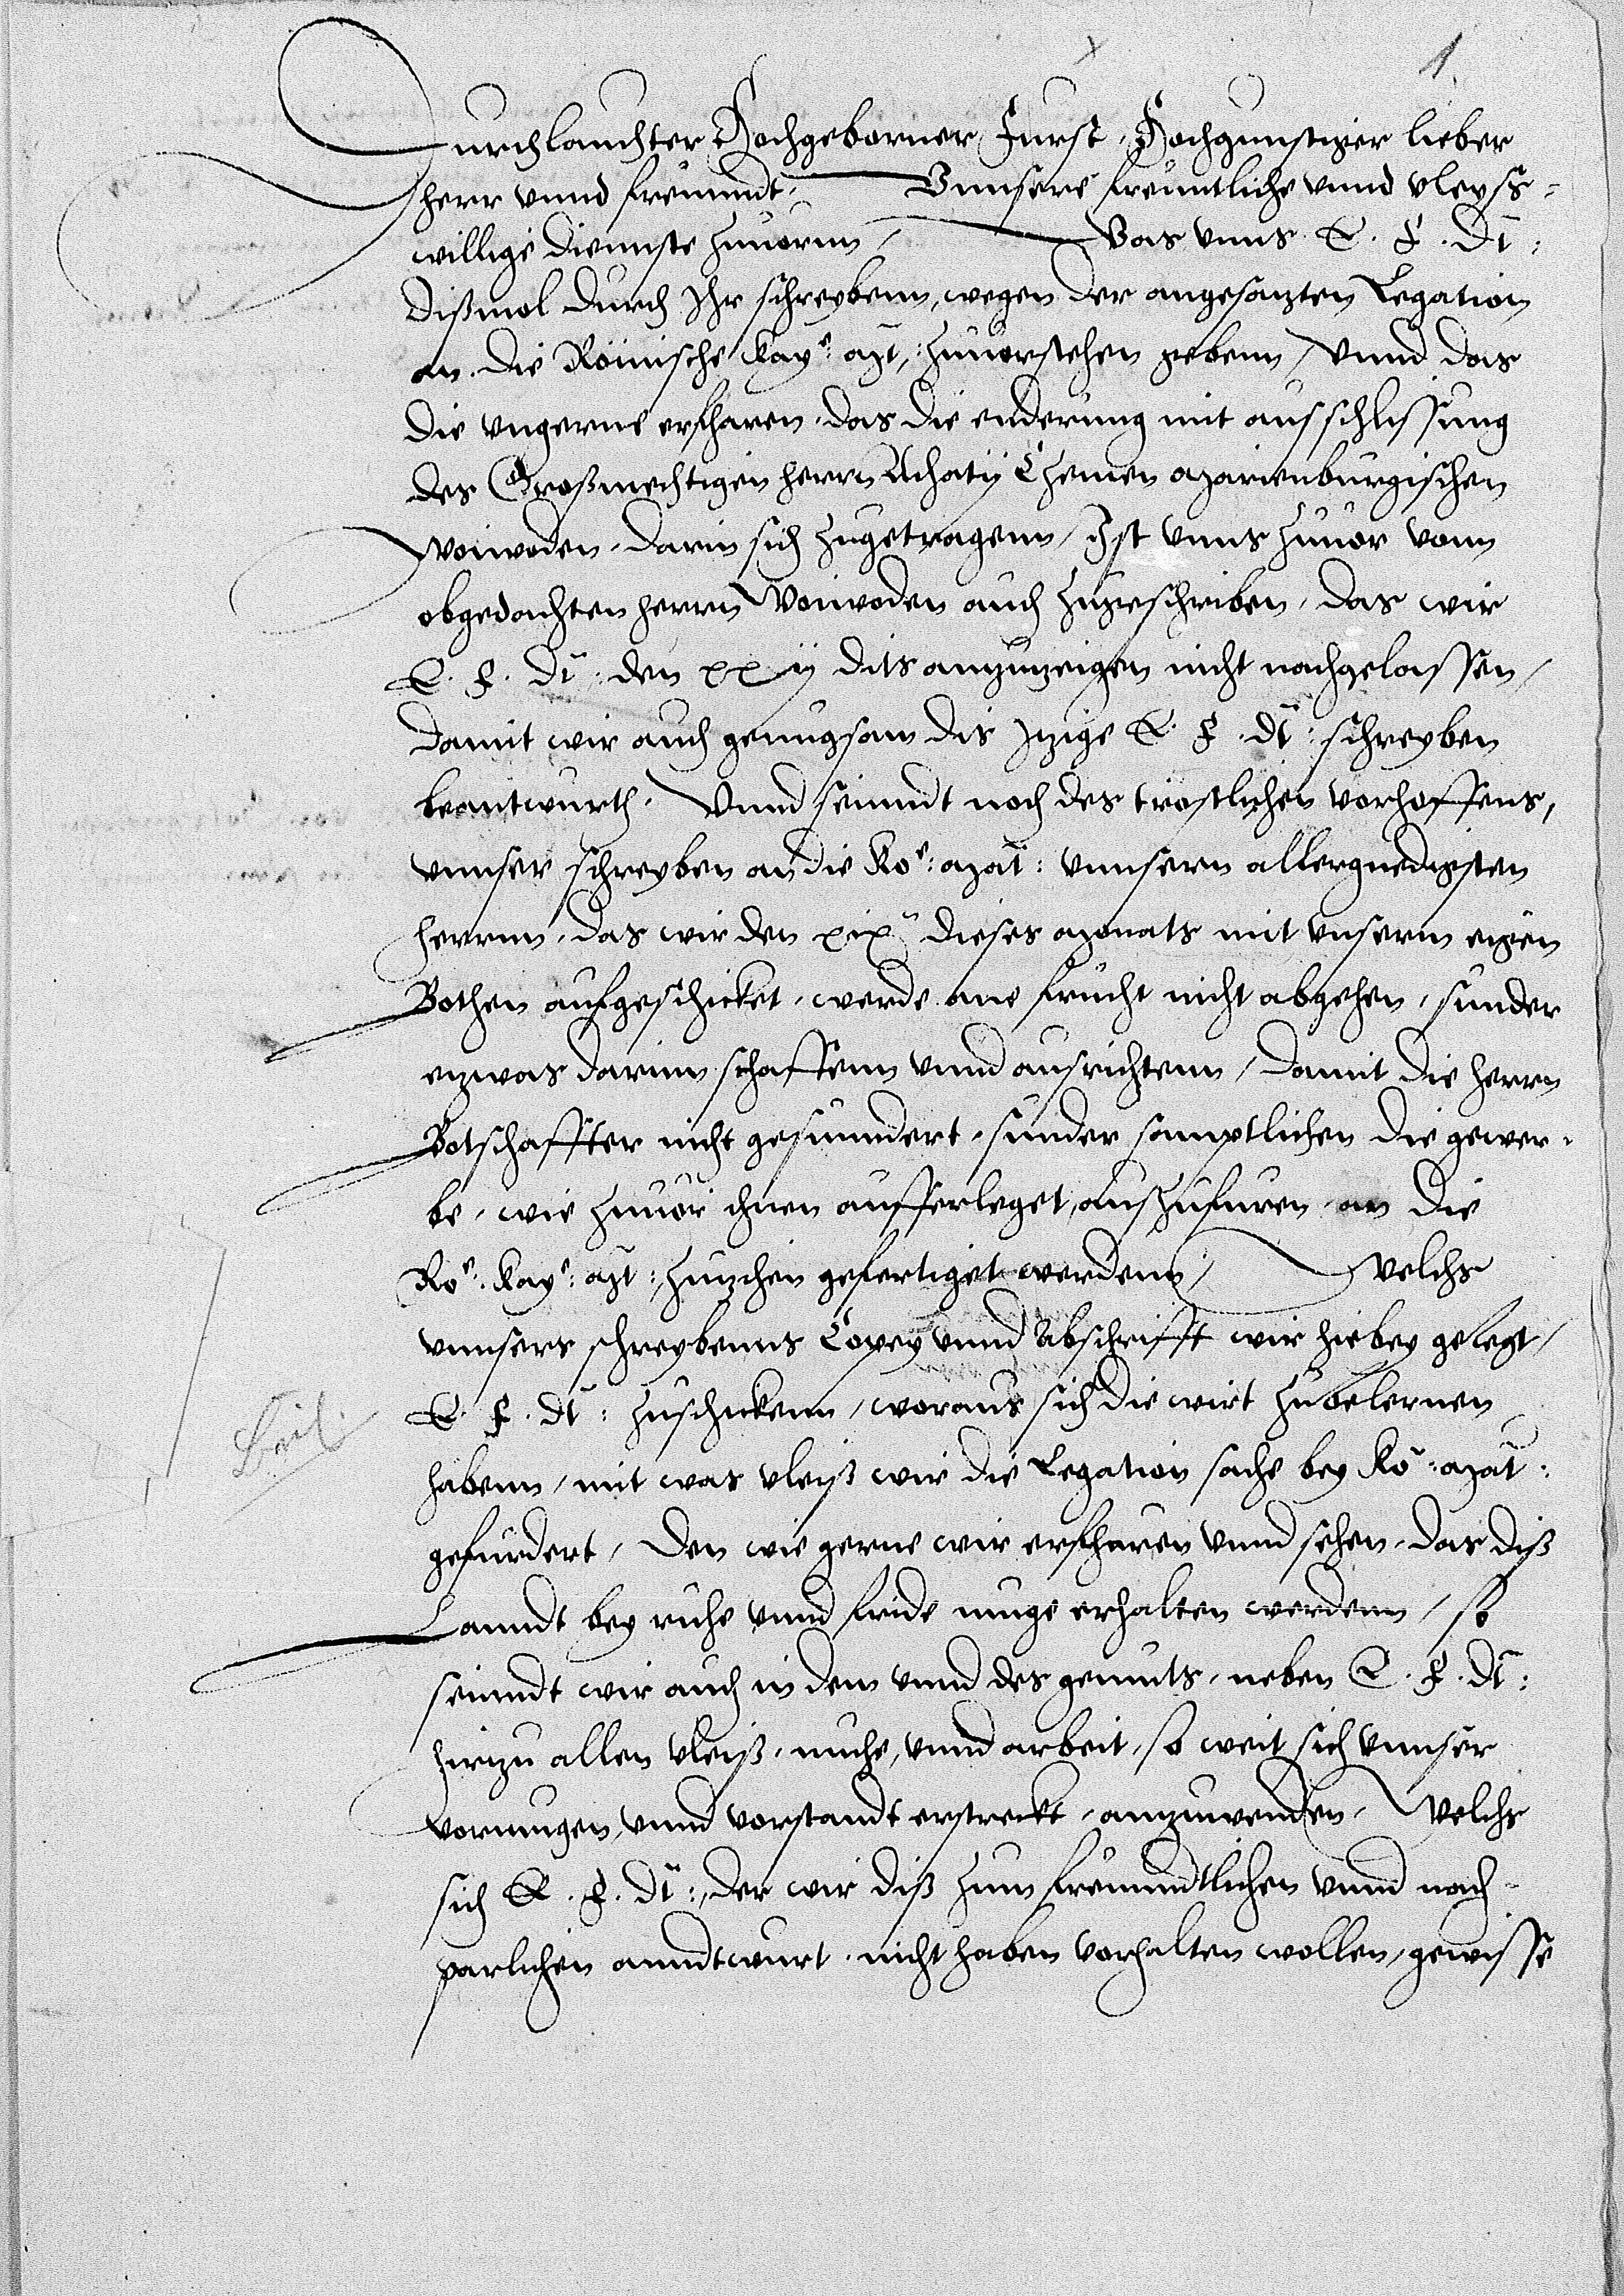 1.
Durchlauchter Hochgeborner Furst, Hochgunstiger lieber
herr vnnd freunndt, Vnnsere freuntliche vnnd vleyss-
willige diennste zuuornn / Was vnns E. F. Dt:
dißmol durch Ihr schreybenn, wegen der angesazten Legation
an die Römische Kaye: Mt, zuuorstehen gebenn / Vnnd das
die vngerne erfharen, das die enderung mit ausschlissung
des Großmechtigen herrn Achatÿ Czemen Marienburgischen
Woiwoden, darin sich zugetragenn / Ist vnns zuuor vonn
obgedachten herrn Woiwoden auch zugeschriben, das wir
E. F. Dt: den xxij dits anzuzeigen nicht nachgelassen /
damit wir auch genugsam dis Izige E. F. Dt: schreyben
beantwurth. Vnnd seinndt noch des trostlichen vorhoffens,
vnnser schreyben an die Koe: Mat: vnnsern allergnedigsten
herrnn, das wir den xix dieses Monats mit vnserm eigen
Bothen aufgeschicket, werde ane frucht nicht abgehen, sunder
ezwas darinn schaffenn vnnd ausrichtenn / damit die herrn
Botschaffter nicht gesunndert, sunder samptlichen die gewer-
be, wie zuuor ihnen aufferleget, auszufuren, an die
Roe. Kaye: Mt: zuzihen gefertiget werdenn / Welchs
vnnsers schreybenns Copey vnnd Abschrifft wir hiebey gelegt /
E. F. Dt: zuschickenn / woraus sich die wirt zubelernen
habenn / mit was vleiß wir die Legation sache bey Ko: Mat:
gefurdert / Den wie gerne wir erfharen vnnd sehen, das diß
Lanndt bey ruhe vnnd fride muge erhalten werdenn / so
seinndt wir auch in dem vnnd des gemuts, neben E. F. Dt:
hirzu allen vleiß, muhe, vnnd arbeit, so weit sich vnnser
vormugen, vnnd vorstandt erstreckt, anzuwenden, Welchs
sich E. F. Dt:, der wir diß zum freunndtlichen vnnd noch-
parlichen anndtwurt, nicht haben vorhalten wollen, gewisse